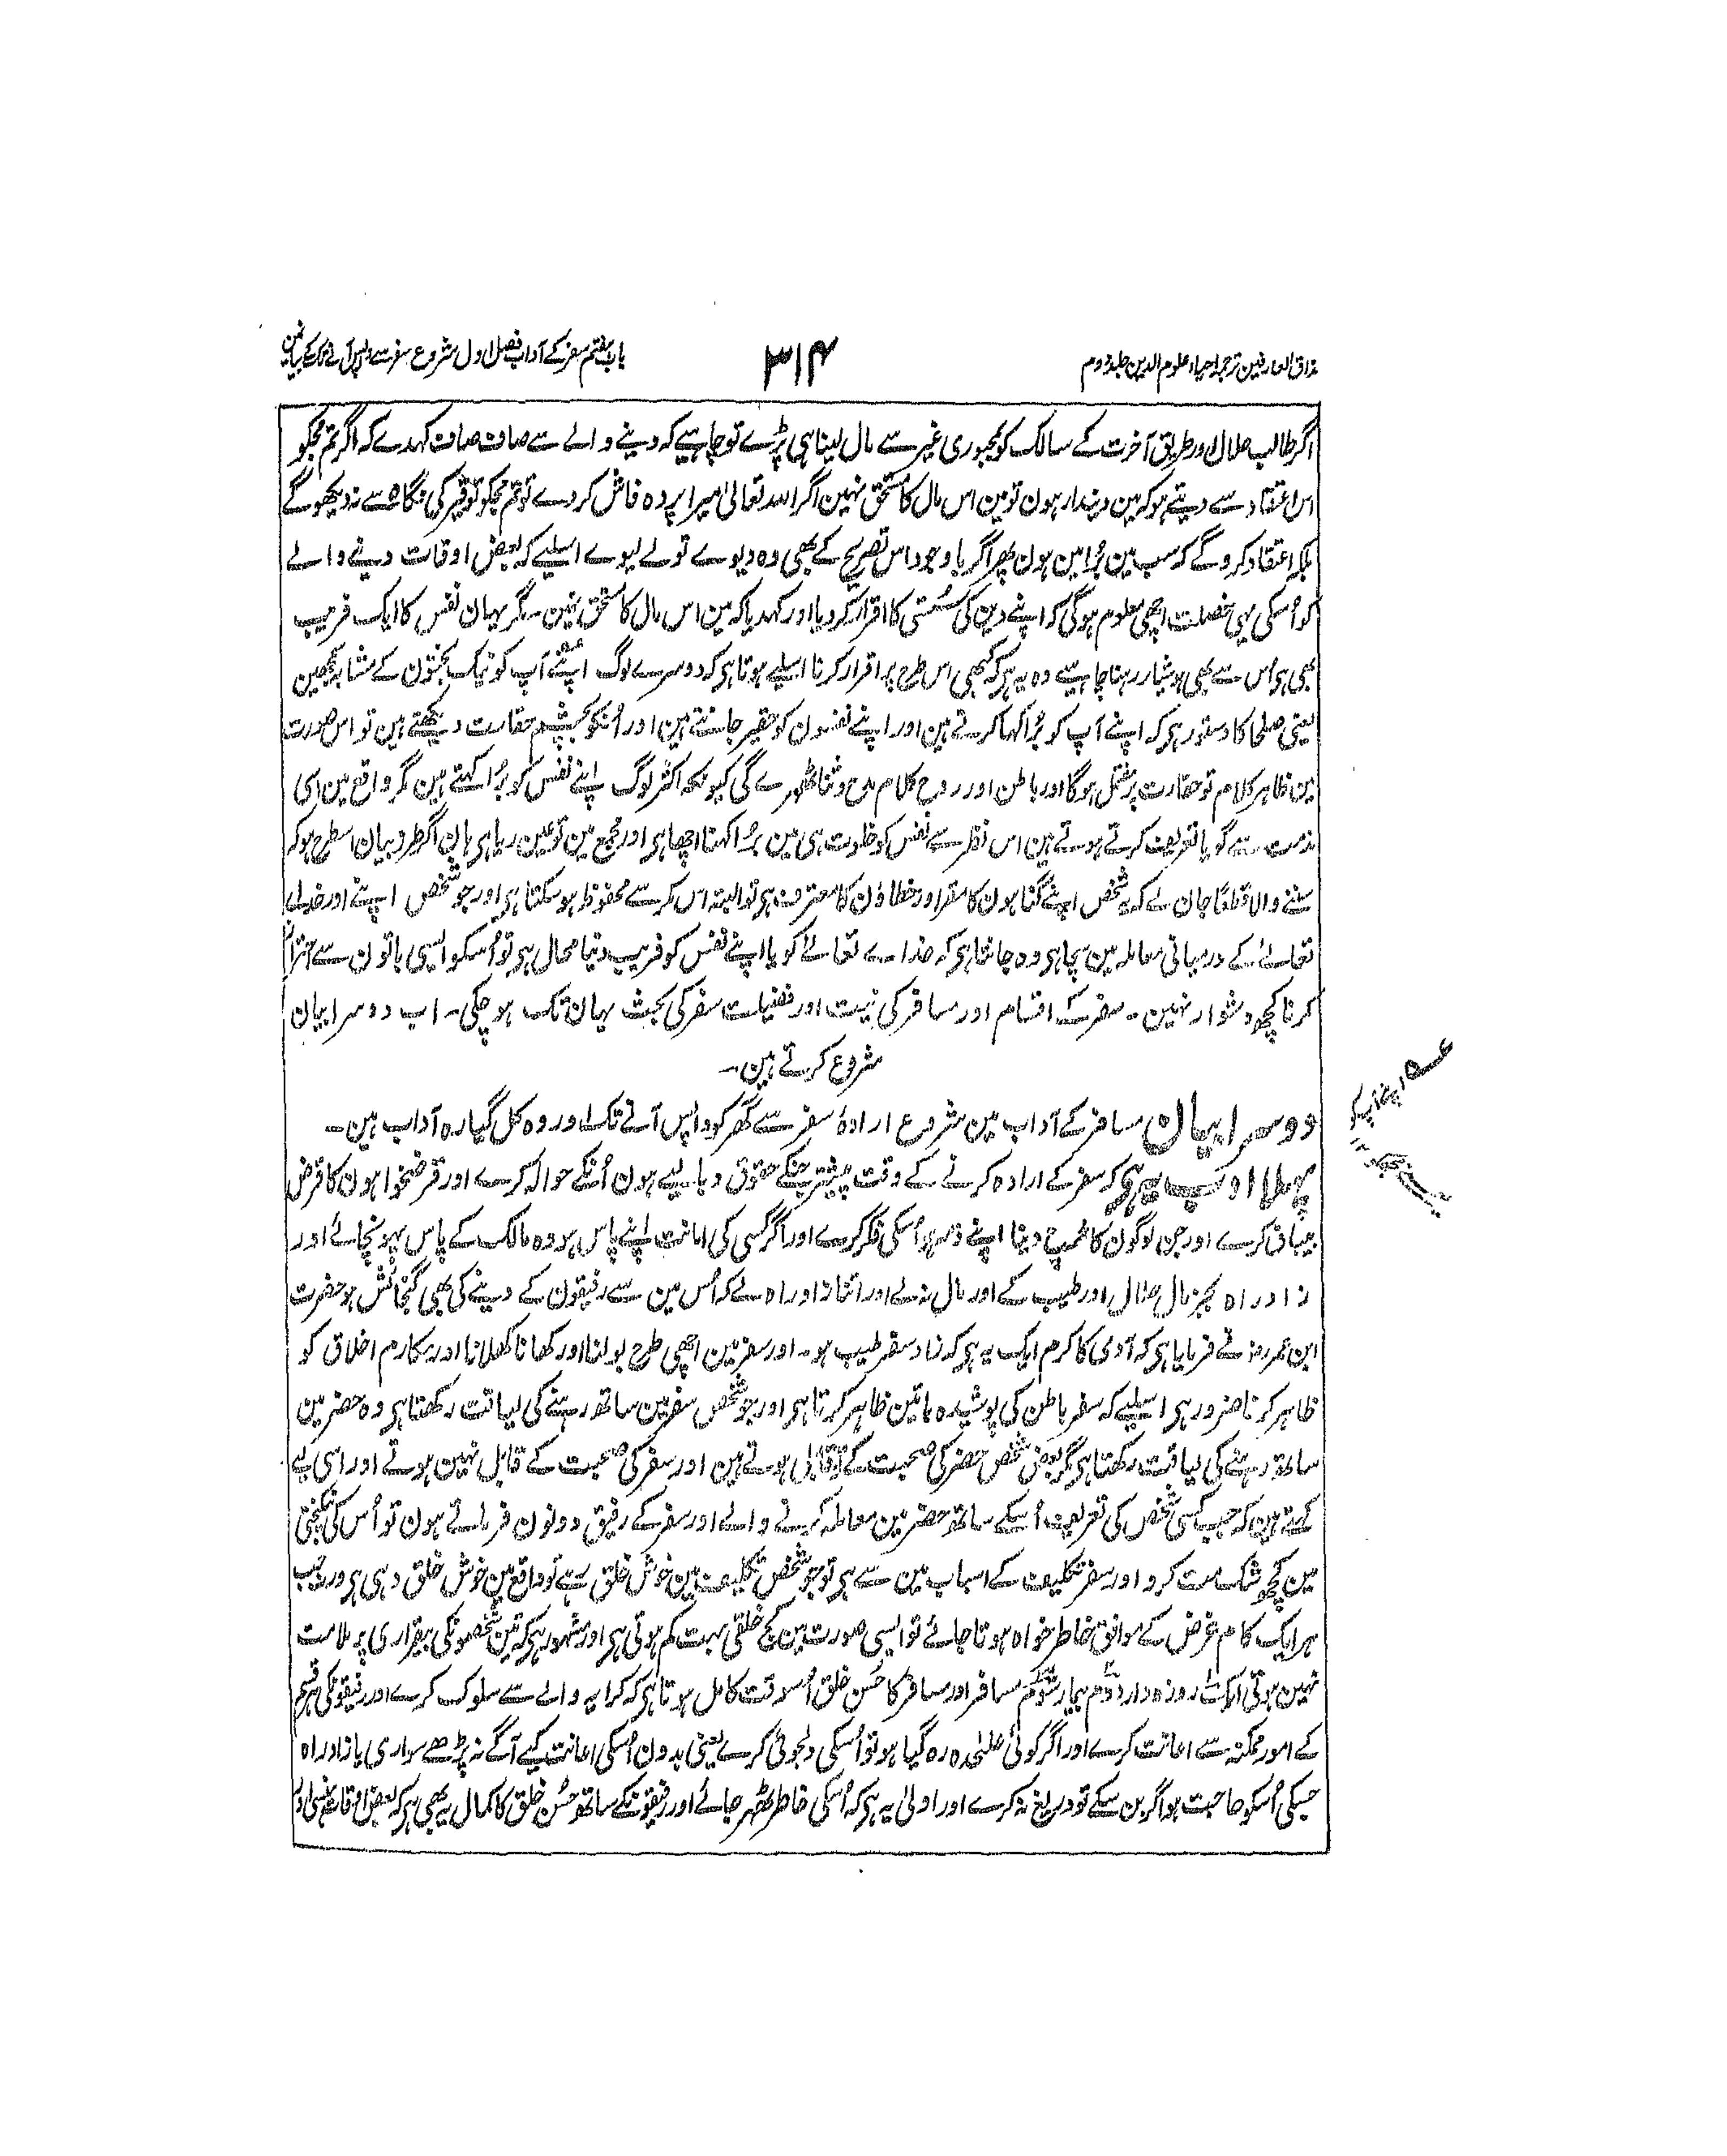 مذاق العارفین ترجمہ احیاء علوم الدین جلد دوم
۳۱۴
باب ہفتم سفر کے آداب فصل اول شروع سفر سے واپس آنے تک کے بیان مین
اگر طالب حلال اور طریق آخرت کے سالک کو بمجبوری غیر سے مال لینا ہی پڑے تو چاہیے کہ دینے والے سے صاف صاف کہدے کہ اگر تم مجکو
اس اعتقاد سے دیتے ہو کہ مین دیندار ہون تو مین اس مال کا مستحق نہین اگر اللہ تعالیٰ میرا پردہ فاش کر دے تو تم مجکو توقیر کی نگاہ سے نہ دیکھو گے
بلکہ اعتقاد کرو گے کہ سب مین بُرا مین ہون پھر اگر باوجود اس تصریح کے بھی وہ دیوے تو لے لیوے اسلیے کہ بعض اوقات دینے والے
کو اُسکی یہی خصلت اچھی معلوم ہوگی کہ اپنے دین کی سُستی کا اقرار کر دیا اور کہدیا کہ مین اس مال کا مستحق نہین۔ مگر یہان نفس کا ایک فریب
بھی ہی اُس سے بھی ہوشیار رہنا چاہیے وہ یہ ہی کہ کبھی اس طرح پر اقرار کرنا اسلیے ہوتا ہی کہ دوسرے لوگ اپنے آپ کو نیک بختون کے مشابہ سمجھین
یعنی صلحا کا دستور ہی کہ اپنے آپ کو بُرا کہا کرتے ہین اور اپنے نفسون کو حقیر جانتے ہین اور اُنکو بچشم حقارت دیکھتے ہین تو اس صورت
مین ظاہر کلام تو حقارت پر مشتمل ہوگا اور باطن اور روح کلام مدح و ثنا ٹھہرے گی کیونکہ اکثر لوگ اپنے نفس کو بُرا کہتے ہین مگر واقع مین اسی
مذمت سے گویا تعریف کرتے ہوتے ہین اس نظر سے نفس کو خلوت ہی مین بُرا کہنا اچھا ہی اور مجمع مین تو عین ریا ہی ہان اگر طرز بیان اسطرح ہو کہ
سننے والا قطعاً جان لے کہ یہ شخص اپنے گناہون کا مقر اور خطاؤن کا معترف ہی تو البتہ اس مکر سے محفوظ ہو سکتا ہی اور جو شخص اپنے اور خداے
تعالےٰ کے درمیانی معاملہ مین سچا ہی وہ جانتا ہی کہ خداے تعالےٰ کو یا اپنے نفس کو فریب دینا محال ہی تو اُسکو ایسی باتون سے احتراز
کرنا کچھ دشوار نہین۔ سفر کے اقسام اور مسافر کی نیت اور فضیلت سفر کی بحث یہان تک ہو چکی۔ اب دوسرا بیان
شروع کرتے ہین۔
دوسرا بیان مسافر کے آداب مین شروع ارادۂ سفر سے گھر کو واپس آنے تک اور وہ کل گیارہ آداب ہین۔
پہلا ادب یہ ہی کہ سفر کے ارادہ کرنے کے وقت پیشتر جنکے حقوق دبا لیے ہون اُنکے حوالہ کرے اور قرضخواہون کا قرض
بیباق کرے اور جن لوگون کا خرچ دینا اپنے ذمہ ہو اُسکی فکر کرے اور اگر کسی کی امانت اپنے پاس ہو وہ مالک کے پاس پہونچائے اور
زاد راہ بجز مال حلال اور طیب کے اور مال نہ لے اور اتنا زاد راہ لے کہ اُس مین سے رفیقون کے دینے کی بھی گنجائش ہو حضرت
ابن عمر رض نے فرمایا ہی کہ آدمی کا کرم ایک یہ ہی کہ زاد سفر طیب ہو۔ اور سفر مین اچھی طرح بولنا اور کھانا کھلانا اور مکارم اخلاق کو
ظاہر کرنا ضرور ہی اسلیے کہ سفر باطن کی پوشیدہ باتین ظاہر کرتا ہی اور جو شخص سفر مین ساتھ رہنے کی لیاقت رکھتا ہی وہ حضر مین
ساتھ رہنے کی لیاقت رکھتا ہی مگر بعض شخص حضر کی صحبت کے قابل ہوتے ہین اور سفر کی صحبت کے قابل نہین ہوتے اور اسی لیے
کہتے ہین کہ جب کسی شخص کی تعریف اُسکے ساتھ حضر مین معاملہ کرنے والے اور سفر کے رفیق دونون فرماتے ہون تو اُس کی نیکبختی
مین کچھ شک مت کرو اور سفر تکلیف کے اسباب مین سے ہی تو جو شخص تکلیف مین خوش خلق رہے تو واقع مین خوش خلق وہی ہی ورنہ جب
ہر ایک کام غرض کے موافق خاطر خواہ ہوتا جائے تو ایسی صورت مین کج خلقی بہت کم ہوتی ہی اور مشہور ہی کہ تین شخصونکی بیقراری پر ملامت
نہین ہوتی ایک روزہ دار دوم بیمار سوم مسافر اور مسافر کا حُسن خلق اُسوقت کامل ہوتا ہی کہ کرایہ والے سے سلوک کرے اور رفیقونکی ہر قسم
کے امور ممکنہ سے اعانت کرے اور اگر کوئی علیٰحدہ رہ گیا ہو تو اُسکی دلجوئی کرے یعنی بدون اُسکی اعانت کیے آگے نہ بڑھے سواری یا زاد راہ
جسکی اُسکو حاجت ہو اگر بن سکے تو دریغ نہ کرے اور اولیٰ یہ ہی کہ اُسکی خاطر ٹھہر جائے اور رفیقونکے ساتھ حُسن خلق کا کمال یہ بھی ہی کہ بعض اوقات
عہ اپنے آپ کو